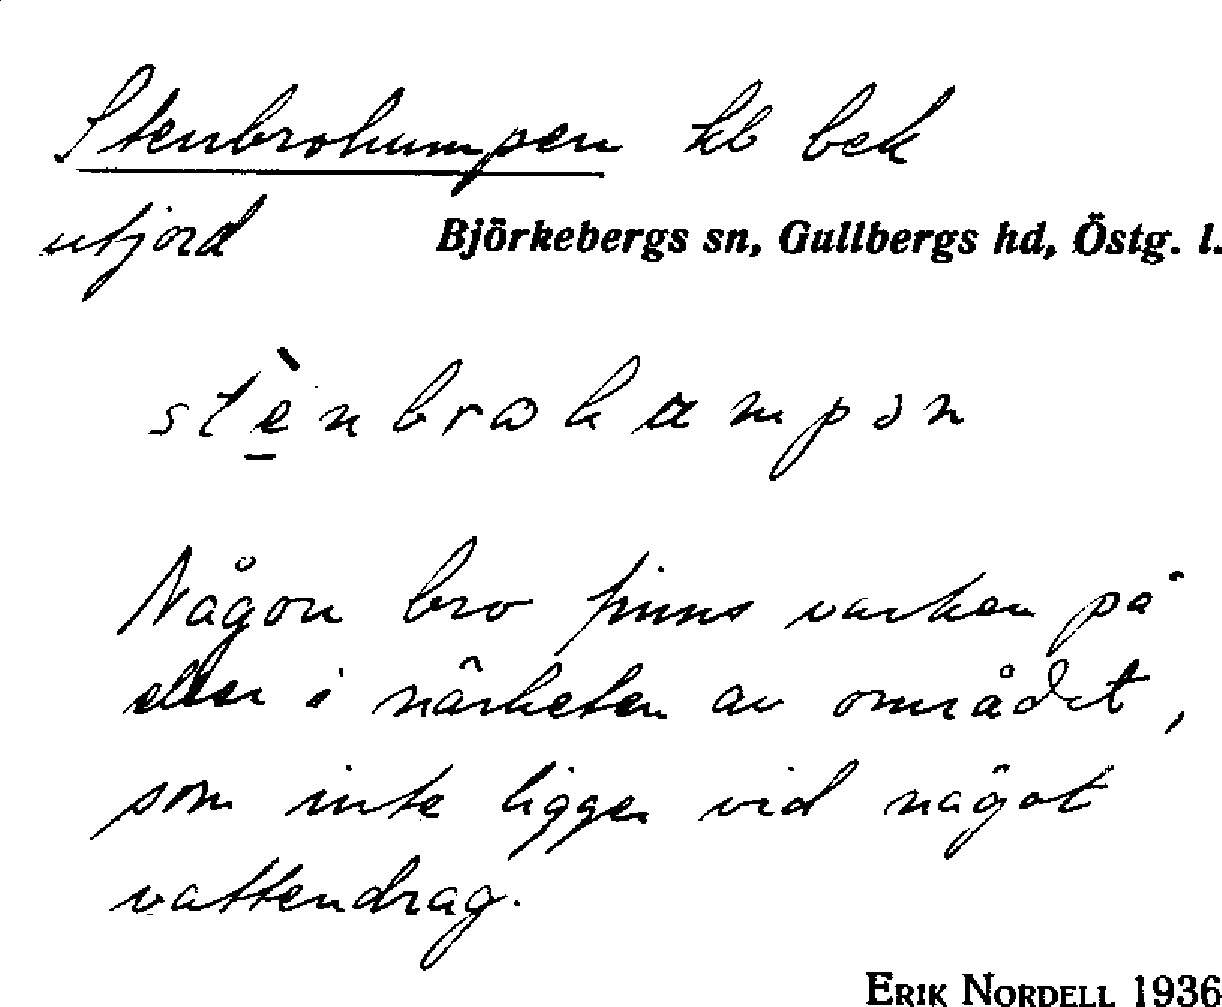 Stenbrohumpen kb bek
utjord Björkebergs sn, Gullbergs hd, Östg. l.
stènbrωhampən
Någon bro finns varken på
eller i närheten av området,
som inte ligger vid något
vattendrag.
ERIK NORDELL 1936